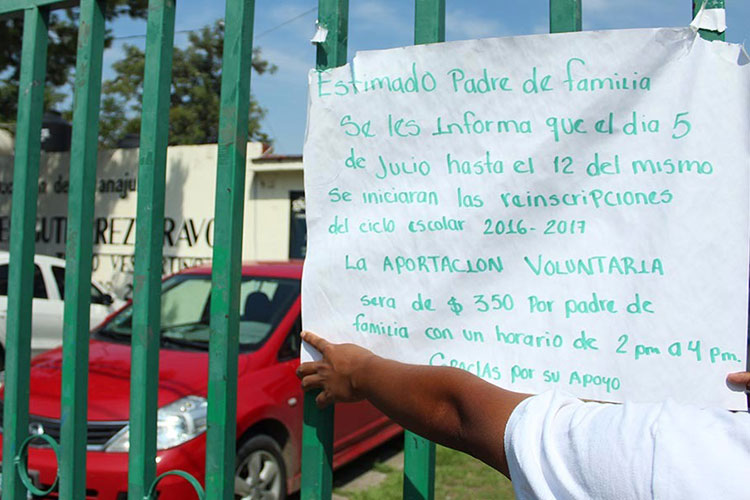 Estimado Padre de familia
Se les Informa que el dia 5
de Julio hasta el 12 del mismo
se iniciaran las reinscripciones
del ciclo escolar 2016-2017
LA APORTACION VOLUNTARIA
sera de $ 350 Por padre de
familia con un horario de 2 pm a 4 pm.
Gracias por su Apoyo